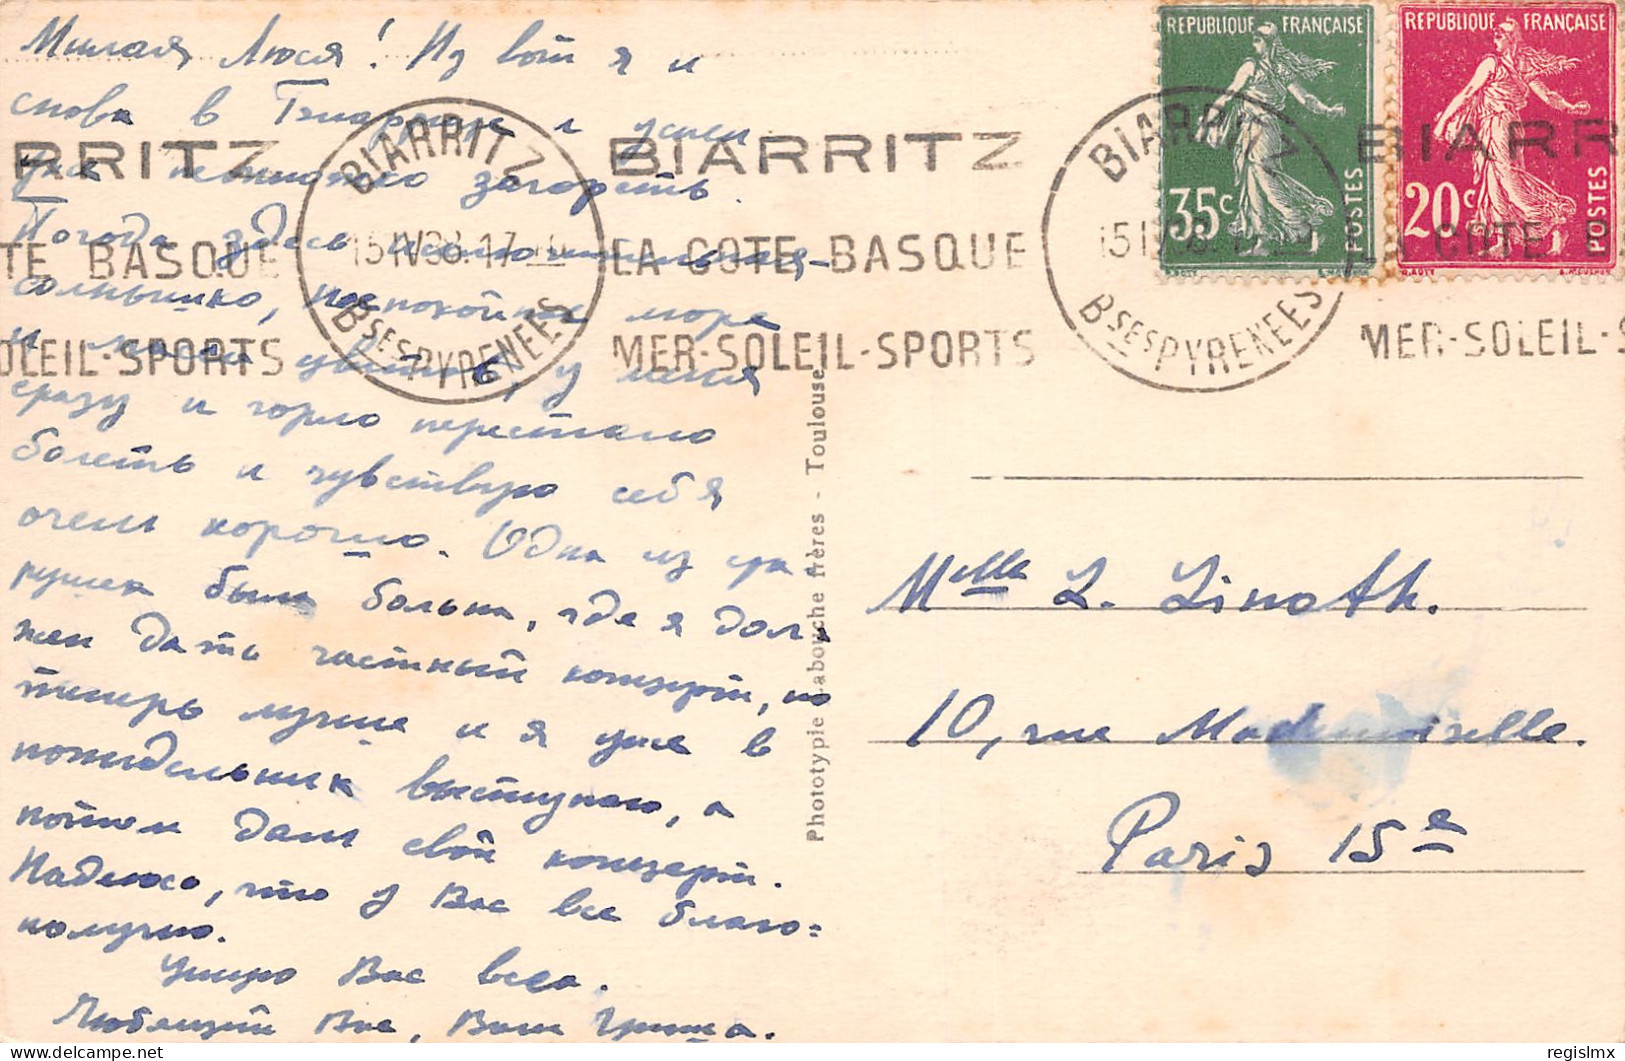 Милая Люся! Из вот я и
снова в Биаррице и успел
уже немножко загореть.
Погода здесь исключительная-
солнышко, неспокойное море
и масса цветов, у меня
сразу и горло перестало
болеть и чувствую себя
очень хорошо. Одна из гра
рушек была больна, где я дол,
жен дать частный концерт, но
теперь лучше и я уже в
понидельник выступаю, а
потом даю свой концерт.
Надеюсь, что у Вас все благо=
получно.
Целую Вас всех.
Любящий Вас, Ваш Гриша.
REPUBLIQUE FRANÇAISE
35c
POSTES
REPUBLIQUE FRANÇAISE
20c
POSTES
RRITZ
TE BASQUE
OLEIL-SPORTS
BIARRITZ
15 IV 38. 17-
BSES PYRENEES
BIARRITZ
LA COTE BASQUE
MER-SOLEIL-SPORTS
BIARRITZ
BSES PYRENEES
BIARR
LA COTE
MER-SOLEIL-S
Phototypie Labouche frères - Toulouse
Melle L. Linoth.
10, rue Mademoiselle.
Paris 15e
delcampe.net
regislmx